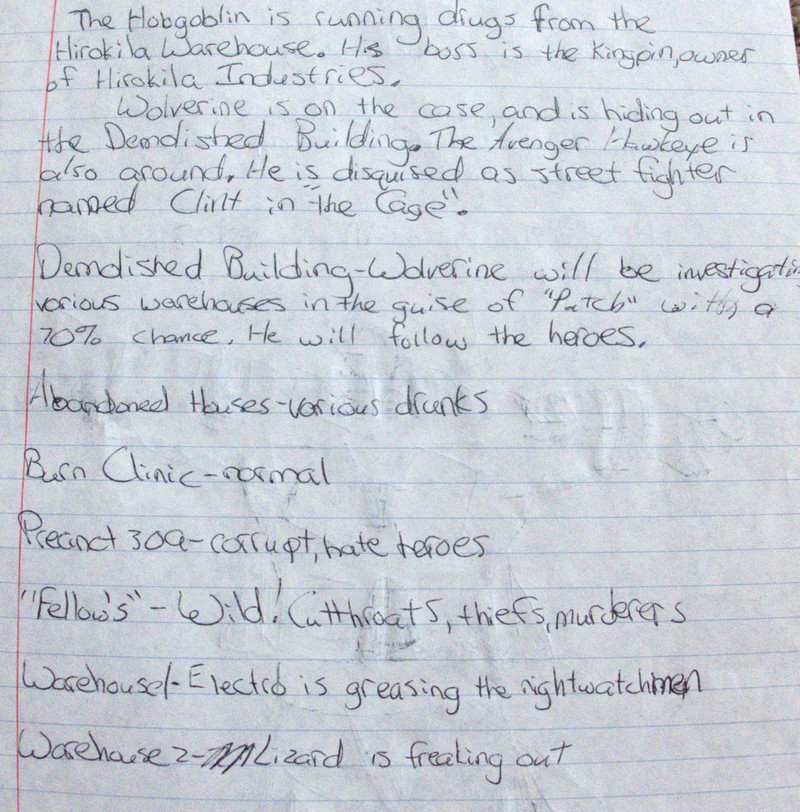 The Hobgoblin is running drugs from the
Hirokila Warehouse. His boss is the Kingpin, owner
of Hirokila Industries.
Wolverine is on the case, and is hiding out in
the Demolished Building. The Avenger Hawkeye is
also around. He is disquised as street fighter
named Clint in "the Cage".
Demolished Building-Wolverine will be investigatin
various warehouses in the guise of "Patch" with a
70% chance. He will follow the heroes.
Abandoned Houses-various drunks
Burn Clinic-normal
Precinct 309-corrupt, hate heroes
"Fellow's"-Wild! Cutthroats, thiefs, murderers
Warehouse 1-Electro is greasing the nightwatchmen
Warehouse 2-Lizard is freaking out